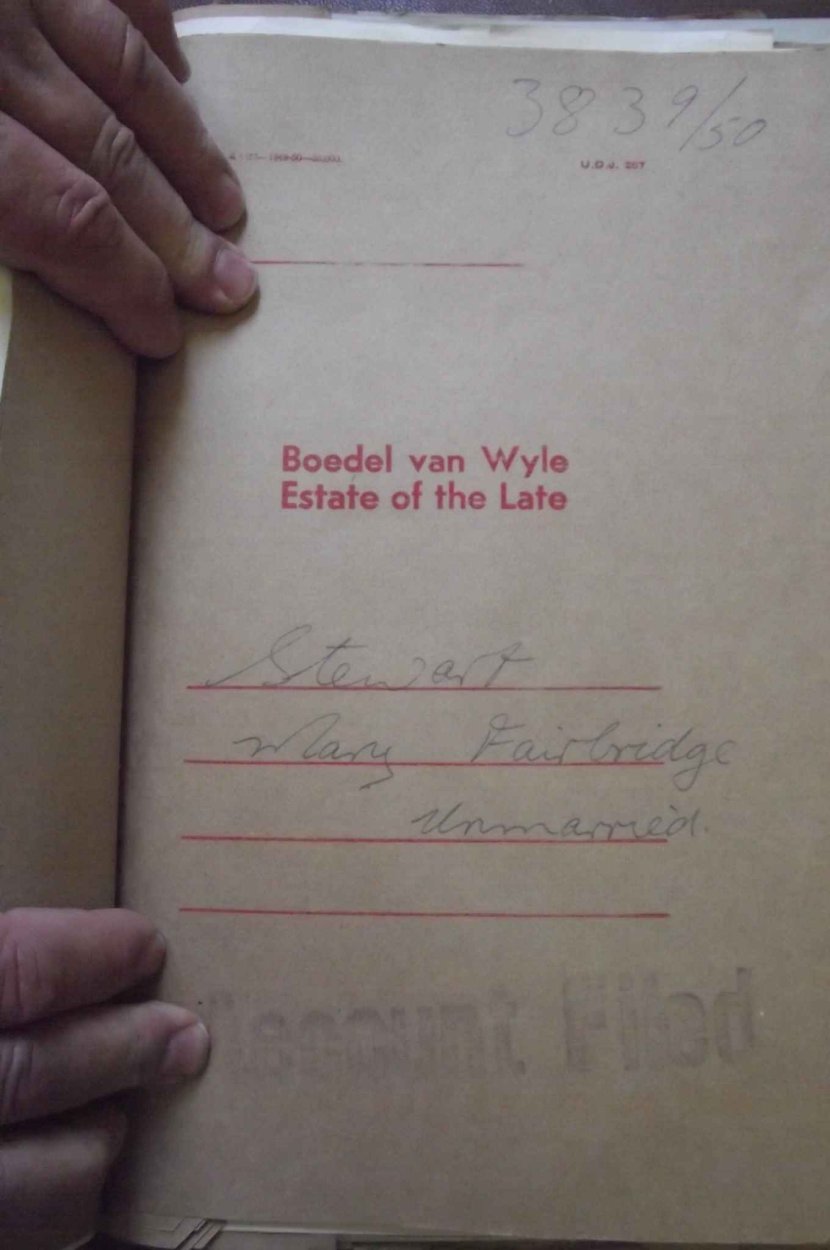 3839/50
U.D.J. 257
Boedel van Wyle
Estate of the Late
Stewart
Mary Fairbridge
Unmarried.
Account Filed